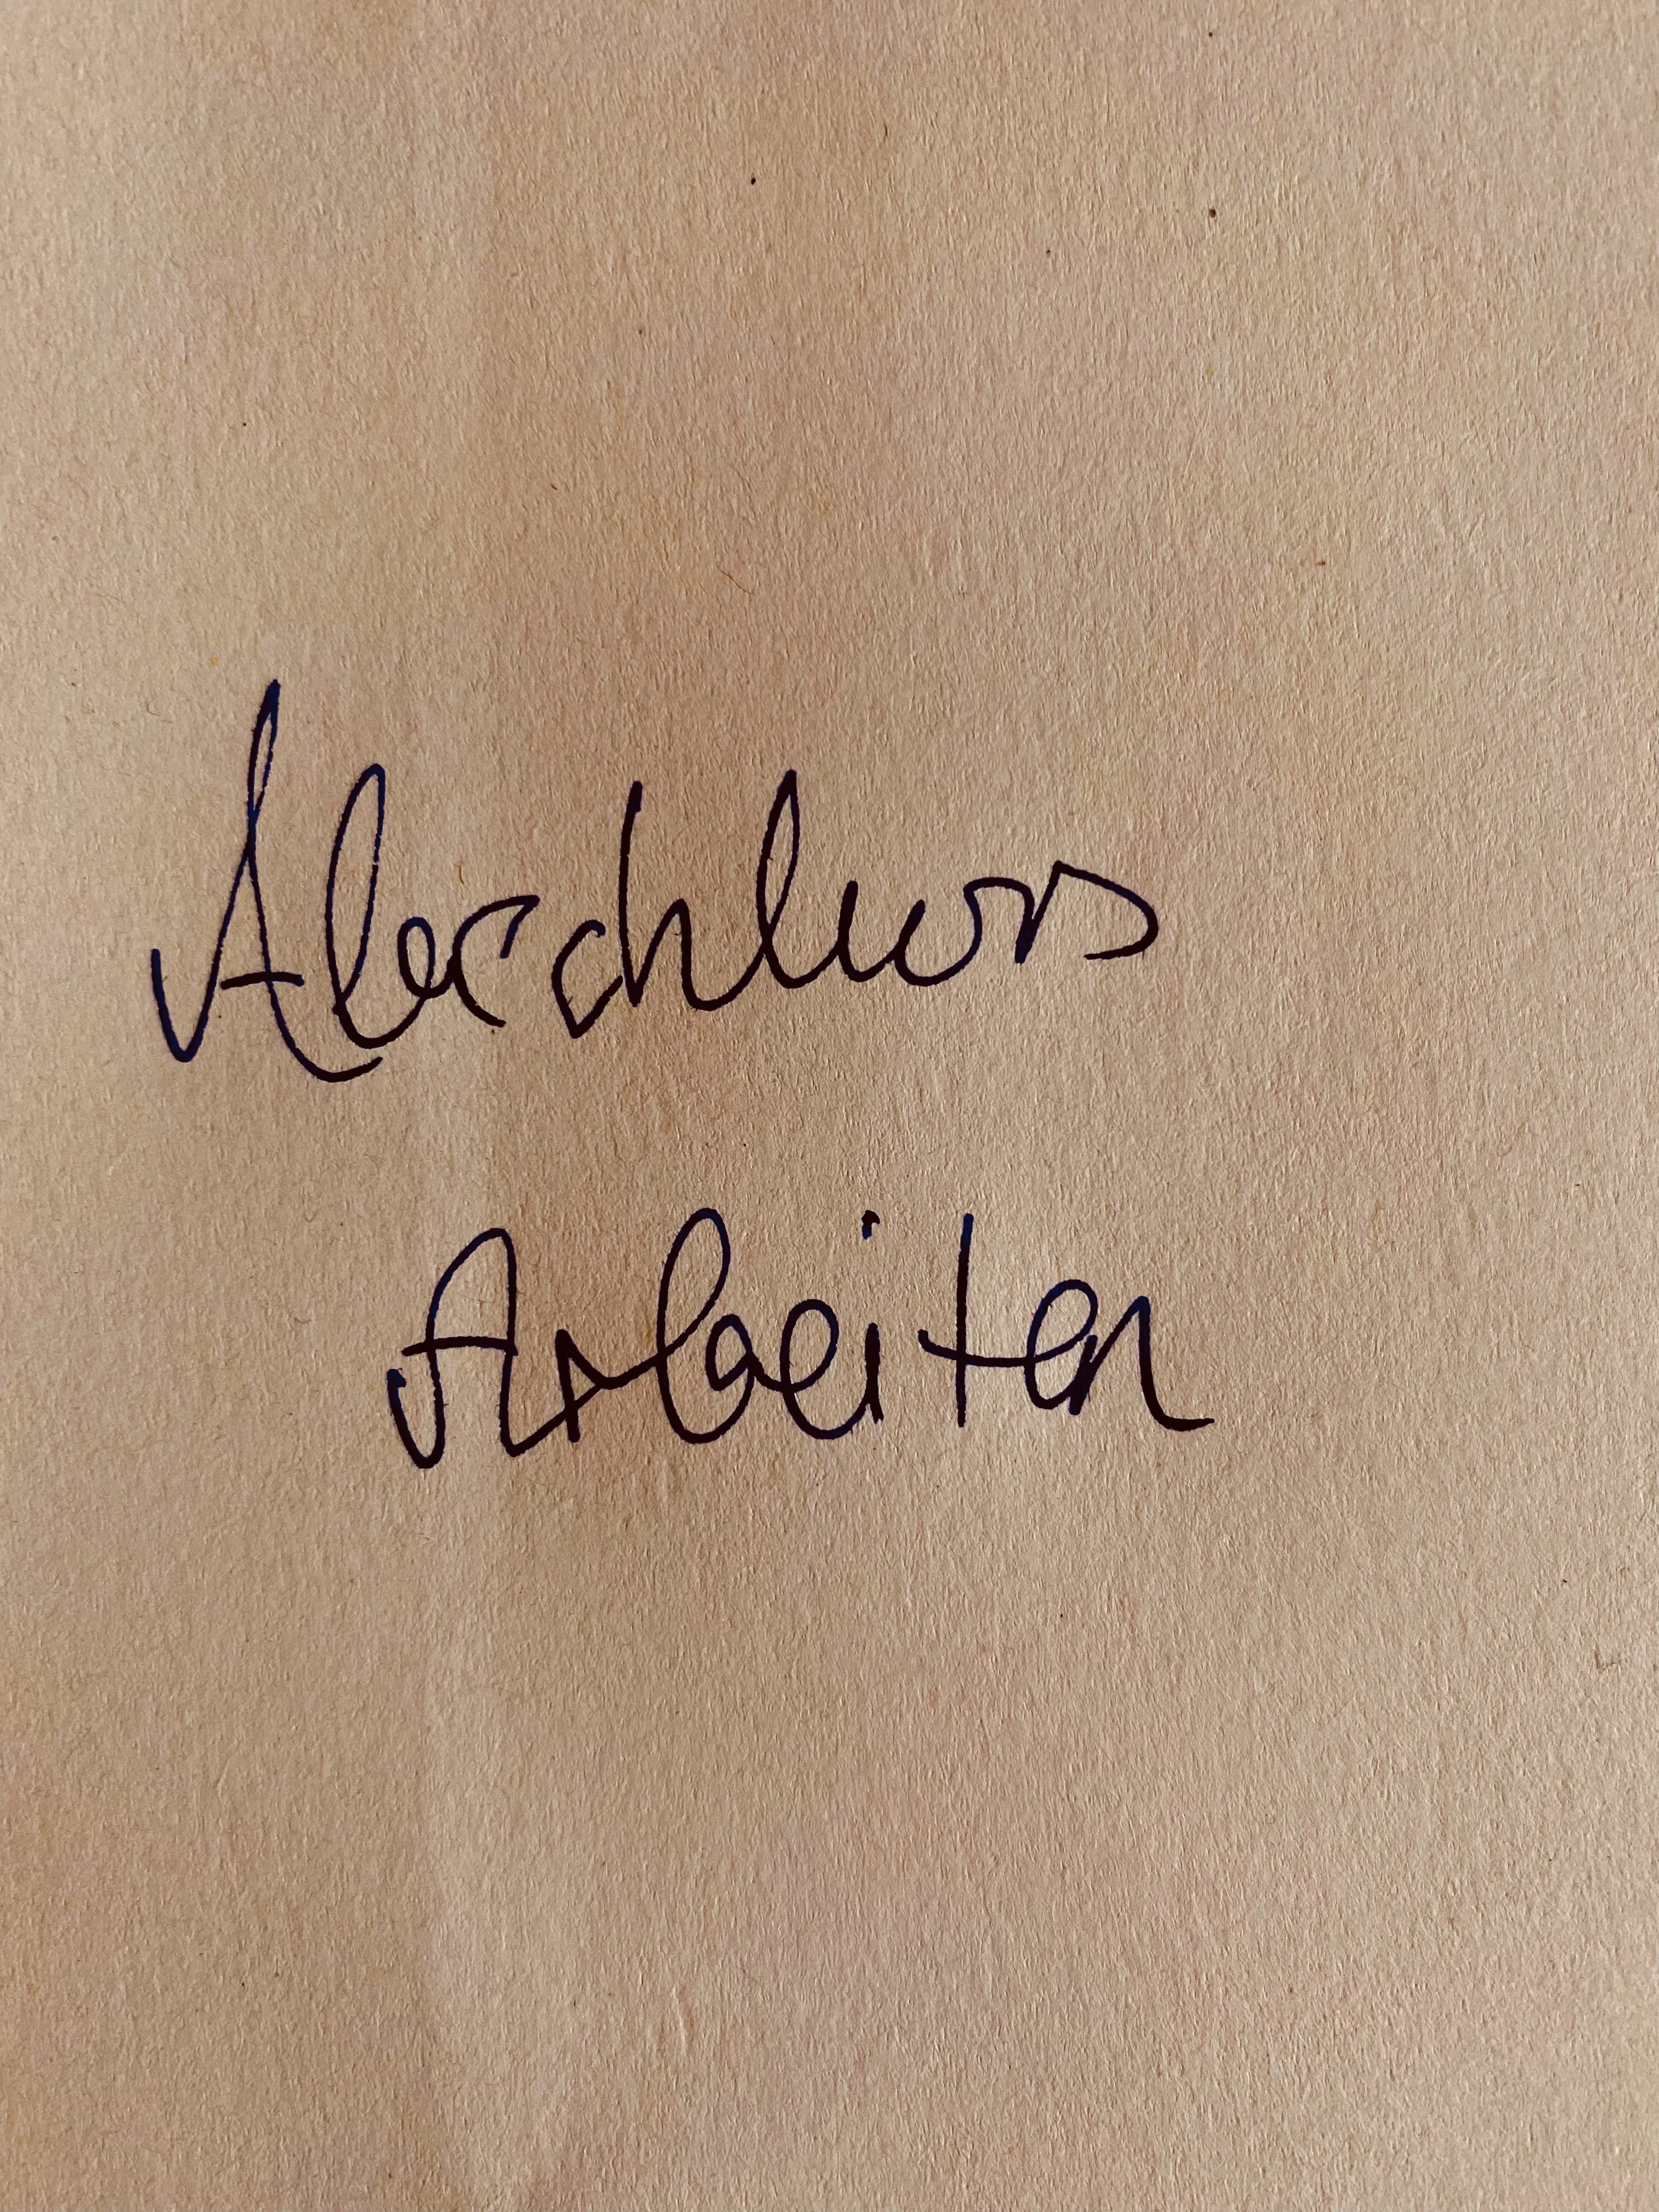 Abschluss
Arbeiten